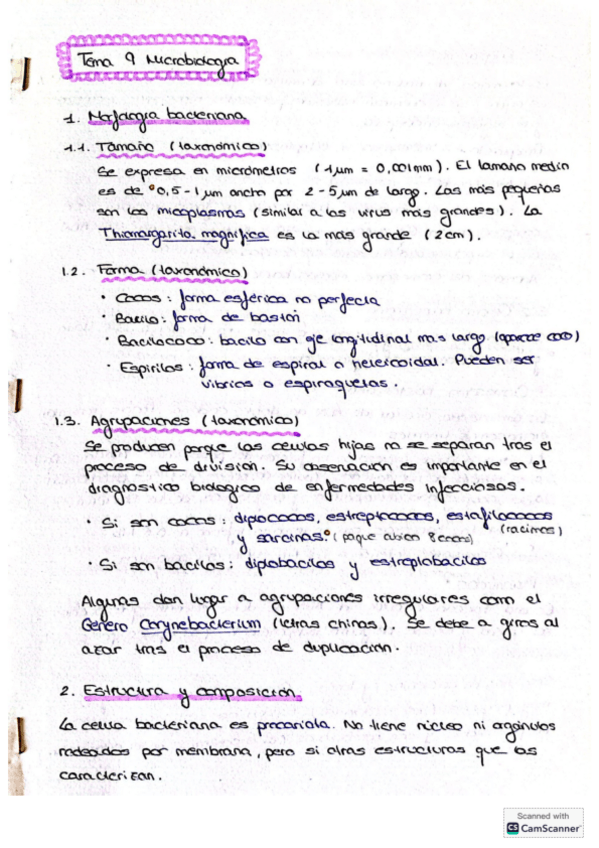 Tema 9 Microbiología
1. Morfología bacteriana
1.1. Tamaño (taxonómico)
Se expresa en micrómetros (1 µm = 0,001 mm). El tamaño medio
es de 0,5 - 1 µm ancho por 2 - 5 µm de largo. Las más pequeñas
son los micoplasmas (similar a los virus más grandes). La
Thiomargarita magnifica es la más grande (2cm).
1.2. Forma (taxonómico)
• Cocos: forma esférica no perfecta
• Bacilo: forma de bastón
• Bacilococo: bacilo con eje longitudinal mas largo (aparece coco)
• Espirilos: forma de espiral o helicoidal. Pueden ser
vibrios o espiroquetas.
1.3. Agrupaciones (taxonómico)
Se producen porque las células hijas no se separan tras el
proceso de división. Su observación es importante en el
diagnóstico biológico de enfermedades infecciosas.
• Si son cocos: diplococos, estreptococos, estafilococos
(racimos)
y sarcinas (paquete cúbico 8 cocos)
• Si son bacilos: diplobacilos y estreptobacilos
Algunas dan lugar a agrupaciones irregulares como el
Género Corynebacterium (letras chinas). Se debe a giros al
azar tras el proceso de duplicación.
2. Estructura y composición.
La célula bacteriana es procariota. No tiene núcleo ni orgánulos
rodeados por membrana, pero si otras estructuras que las
caracterizan.
Scanned with
CS CamScanner